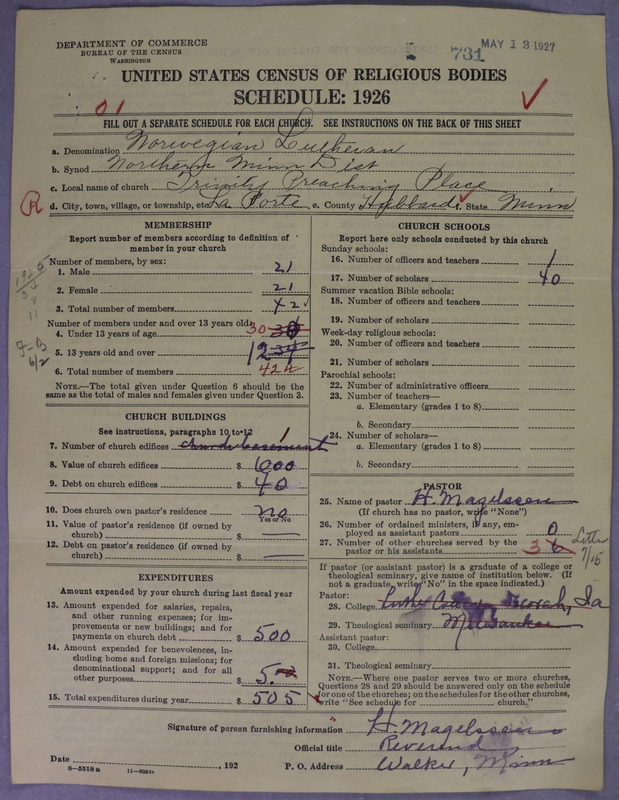 DEPARTMENT OF COMMERCE
BUREAU OF THE CENSUS
WASHINGTON
731
MAY 13 1927
UNITED STATES CENSUS OF RELIGIOUS BODIES
SCHEDULE: 1926
01
FILL OUT A SEPARATE SCHEDULE FOR EACH CHURCH. SEE INSTRUCTIONS ON THE BACK OF THIS SHEET
a. Denomination Norwegian Lutheran
b. Synod Northern Minn Dist
c. Local name of church Trinity Preaching Place
R d. City, town, village, or township, etc. La Porte e. County Hubbard f. State Minn
MEMBERSHIP
Report number of members according to definition of
member in your church
Number of members, by sex:
1. Male 21
2. Female 21
3. Total number of members 42
Number of members under and over 13 years old:
4. Under 13 years of age 30
5. 13 years old and over 12
6. Total number of members 42
NOTE.—The total given under Question 6 should be the
same as the total of males and females given under Question 3.
CHURCH BUILDINGS
See instructions, paragraphs 10 to 12
7. Number of church edifices church basement 1
8. Value of church edifices $ 600
9. Debt on church edifices $ 40
10. Does church own pastor's residence? no
Yes or No
11. Value of pastor's residence (if owned by
church) $ —
12. Debt on pastor's residence (if owned by
church) $ —
EXPENDITURES
Amount expended by your church during last fiscal year
13. Amount expended for salaries, repairs,
and other running expenses; for im-
provements or new buildings; and for
payments on church debt $ 500
14. Amount expended for benevolences, in-
cluding home and foreign missions; for
denominational support; and for all
other purposes $ 5.00
15. Total expenditures during year $ 505
CHURCH SCHOOLS
Report here only schools conducted by this church
Sunday schools:
16. Number of officers and teachers 1
17. Number of scholars 40
Summer vacation Bible schools:
18. Number of officers and teachers
19. Number of scholars
Week-day religious schools:
20. Number of officers and teachers
21. Number of scholars
Parochial schools:
22. Number of administrative officers
23. Number of teachers—
a. Elementary (grades 1 to 8)
b. Secondary
24. Number of scholars—
a. Elementary (grades 1 to 8)
b. Secondary
PASTOR
25. Name of pastor H. Magelssen
(If church has no pastor, write "None")
26. Number of ordained ministers, if any, em-
ployed as assistant pastors 0
27. Number of other churches served by the
pastor or his assistants 3 6
Letter
7/15
If pastor (or assistant pastor) is a graduate of a college or
theological seminary, give name of institution below. (If
not a graduate, write "No" in the place indicated.)
Pastor:
28. College Luther College Decorah, Ia
29. Theological seminary Milwaukee
Assistant pastor:
30. College
31. Theological seminary
NOTE.—Where one pastor serves two or more churches,
Questions 28 and 29 should be answered only on the schedule
for one of the churches; on the schedules for the other churches,
write "See schedule for ______ church."
Signature of person furnishing information H. Magelssen
Official title Reverend
Date ______, 192 P. O. Address Walker, Minn
8—5518 a 11—9086